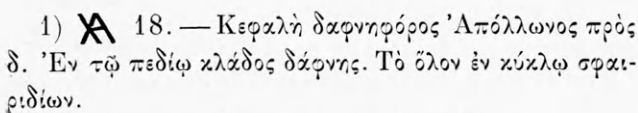 1) Ꜽ 18. — Κεφαλὴ δαφνηφόρος Ἀπόλλωνος πρὸς
δ. Ἐν τῷ πεδίῳ κλάδος δάφνης. Τὸ ὅλον ἐν κύκλῳ σφαι-
ριδίων.